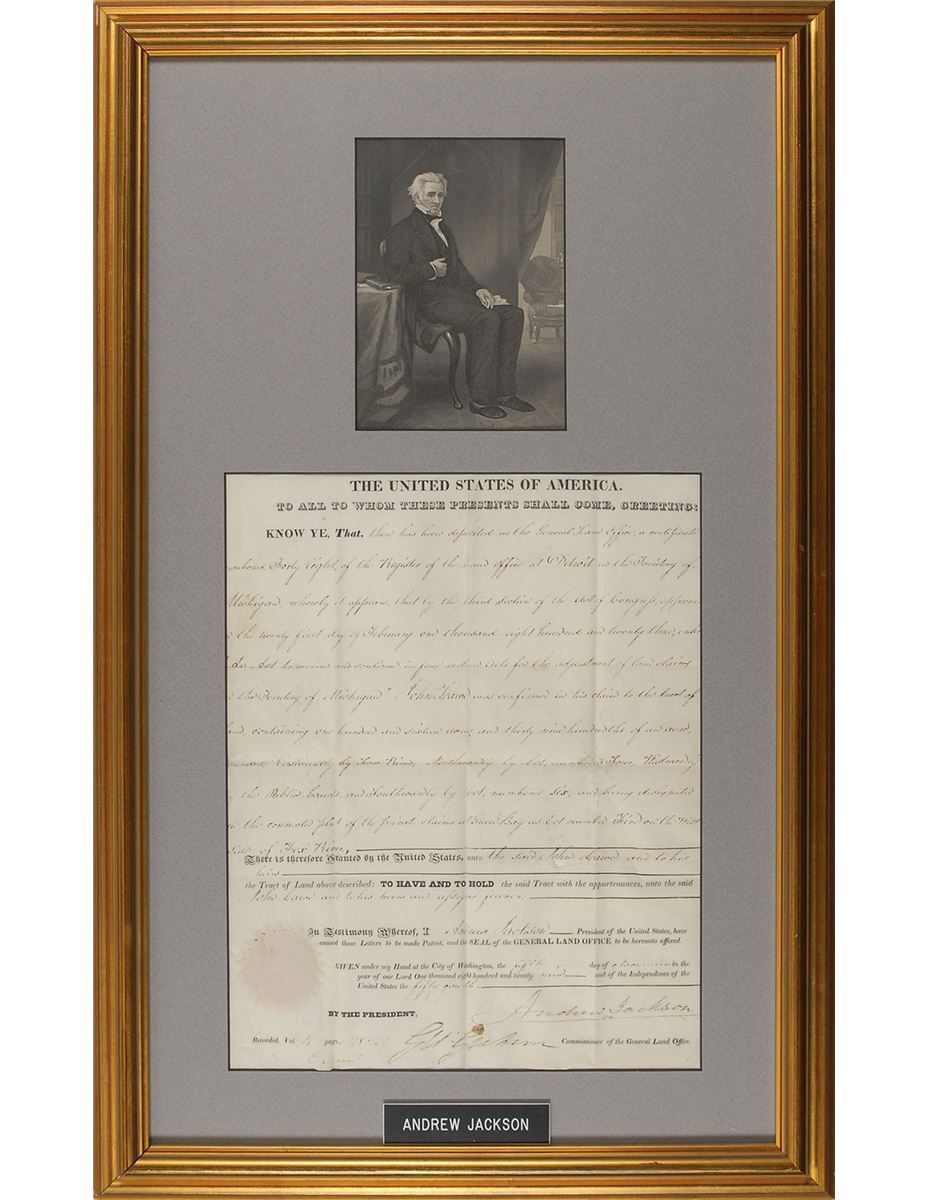 THE UNITED STATES OF AMERICA.
TO ALL TO WHOM THESE PRESENTS SHALL COME, GREETING:
KNOW YE, That, there has been deposited in the General Land Office, a certificate
numbered Forty Eight, of the Register of the Land Office at Detroit in the Territory of
Michigan, whereby it appears, that by the third section of the Act of Congress, approved
the twenty first day of February one thousand eight hundred and twenty three,
An Act to revive and continue in force certain Acts for the adjustment of land claims
the Territory of Michigan" John Lawe was confirmed in his claim to the tract of
land, containing one hundred and sixteen acres, and thirty nine hundredths of an acre,
Eastwardly by Fox River, Northwardly by Lot, numbered Four, Westwardly
the Public Lands, and Southwardly by Lot, numbered Six, and being designated
on the connected plat of the private claims at Green Bay as Lot numbered Five on the West
side of Fox River,
There is therefore Granted by the United States, unto the said John Lawe and to his
heirs
the Tract of Land above described: TO HAVE AND TO HOLD the said Tract with the appurtenances, unto the said
John Lawe and to his heirs and assigns forever.
In Testimony Whereof, I Andrew Jackson President of the United States, have
caused these Letters to be made Patent, and the SEAL of the GENERAL LAND OFFICE to be hereunto affixed.
GIVEN under my Hand at the City of Washington, the fifth day of November in the
year of our Lord One thousand eight hundred and twenty nine and of the Independence of the
United States the fifty fourth.
Andrew Jackson
BY THE PRESIDENT,
Recorded, Vol. page Commissioner of the General Land Office.
ANDREW JACKSON